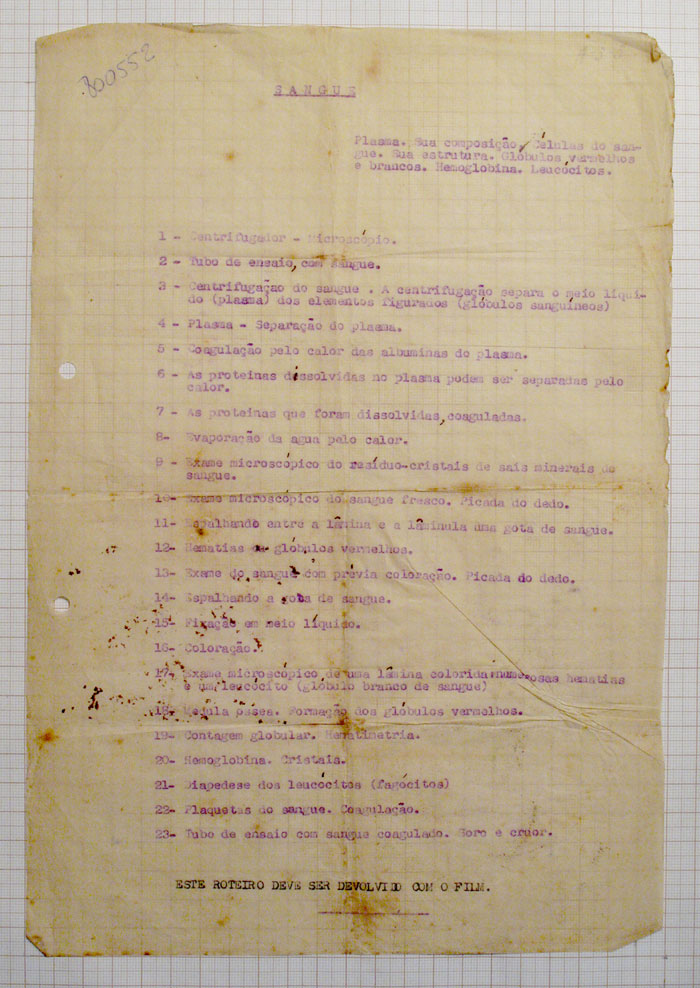 800552
SANGUE
Plasma. Sua composição. Células do san-
gue. Sua estrutura. Glóbulos vermelhos
e brancos. Hemoglobina. Leucócitos.
1 - Centrifugador - Microscópio.
2 - Tubo de ensaio, com sangue.
3 - Centrifugação do sangue . A centrifugação separa o meio líqui-
do (plasma) dos elementos figurados (glóbulos sanguíneos)
4 - Plasma - Separação do plasma.
5 - Coagulação pelo calor das albuminas do plasma.
6 - As proteinas dissolvidas no plasma podem ser separadas pelo
calor.
7 - As proteinas que foram dissolvidas, coaguladas.
8- Evaporação da agua pelo calor.
9 - Exame microscópico do resíduo-cristais de sais minerais do
sangue.
10- Exame microscópico do sangue fresco. Picada do dedo.
11- Espalhando entre a lâmina e a lâminula uma gota de sangue.
12- Hematias ou glóbulos vermelhos.
13- Exame do sangue com prévia coloração. Picada do dedo.
14- Espalhando a gota de sangue.
15- Fixação em meio líquido.
16- Coloração.
17- Exame microscópico de uma lâmina colorida:numerosas hematias
e um leucócito (glóbulo branco de sangue)
18- Medula ossea. Formação dos glóbulos vermelhos.
19- Contagem globular. Hematimetria.
20- Hemoglobina. Cristais.
21- Diapedese dos leucócitos (fagócitos)
22- Plaquetas do sangue. Coagulação.
23- Tubo de ensaio com sangue coagulado. Soro e cruor.
ESTE ROTEIRO DEVE SER DEVOLVIDO COM O FILM.